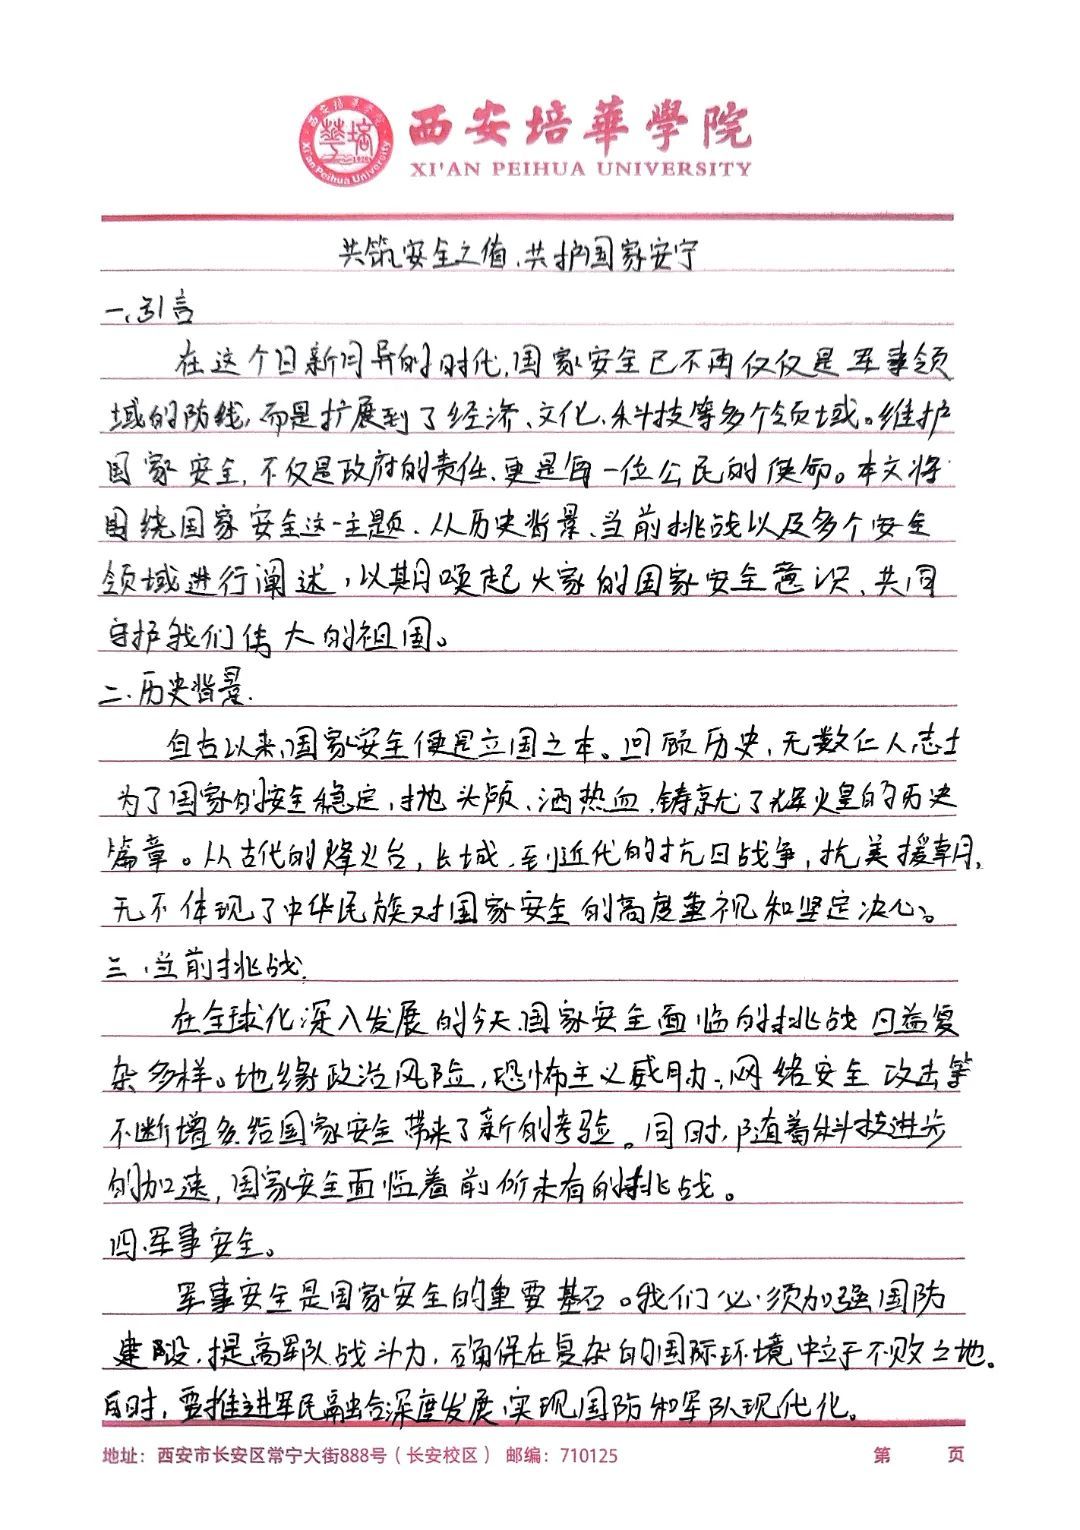 西安培華學院
XI'AN PEIHUA UNIVERSITY
共筑安全之盾、共护国家安宁
一、引言
在这个日新月异的时代,国家安全已不再仅仅是军事领
域的防线,而是扩展到了经济、文化、科技等多个领域。维护
国家安全,不仅是政府的责任、更是每一位公民的使命。本文将
围绕国家安全这一主题、从历史背景、当前挑战以及多个安全
领域进行阐述,以期唤起大家的国家安全意识、共同
守护我们伟大的祖国。
二、历史背景.
自古以来,国家安全便是立国之本。回顾历史,无数仁人志士
为了国家的安全稳定,抛头颅、洒热血、铸就了辉煌的历史
篇章。从古代的烽火台,长城、到近代的抗日战争,抗美援朝,
无不体现了中华民族对国家安全的高度重视和坚定决心。
三、当前挑战.
在全球化深入发展的今天、国家安全面临的挑战日益复
杂多样。地缘政治风险,恐怖主义威胁、网络安全攻击等
不断增多给国家安全带来了新的考验。同时,随着科技进步
的加速,国家安全面临着前所未有的挑战。
四、军事安全。
军事安全是国家安全的重要基石。我们必须加强国防
建设、提高军队战斗力,确保在复杂的国际环境中立于不败之地。
同时,要推进军民融合深度发展、实现国防和军队现代化。
地址：西安市长安区常宁大街888号（长安校区） 邮编：710125 第 页